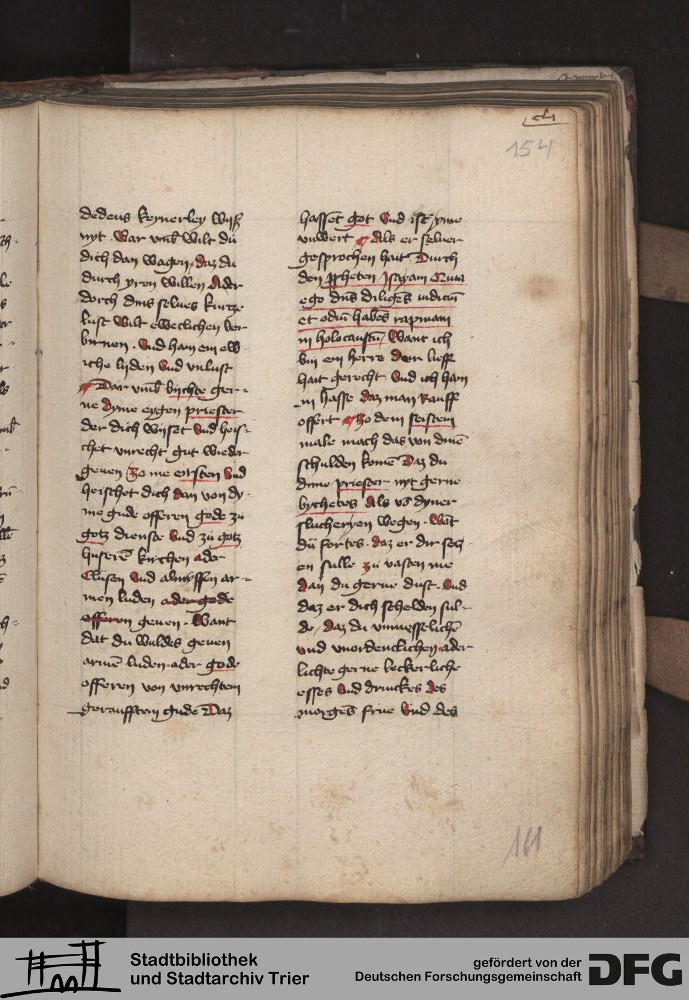 154
dedens keynerley wyß
nyt. War vmb wilt du
dich dan wagen. daz du
durch yren willen Ader
dorch dins selues kurtze
lust wilt eweclichen ver
birnen. Vnd han ein ew
iche lyden Vnd vnlust
Dar vmb bychte ger-
ne dyme eygen priester
der dich wyset Vnd heis-
chet vnrecht gut wieder
geuen Zo me eirsten Vnd
heischet dich dan von dy-
me gude offeren gode zu
gotz dienste Vnd zu gotz
huserē kirchen ader
Clusen Vnd almyssen ar-
men luden ader gode
offeren geuen. Want
dat du wuldes geuen
armē luden ader gode
offeren von vnrechtem
geraufftem gude Daz
hassēt got Vnd ist yme
vnwert Als er seluer
gesprochen hait Durch
den ꝓheten Jsayam Quia
ego dn̄s diligēs iudiciū
et odiū habēs rapinam
in holocaustū / Want ich
bin ein herre der lieff
hait gerecht Vnd ich han
in hasse daz man Rauff
offert Zo dem seistem
male mach das von dinē
schulden komē Daz du
dime priester nyt gerne
bychetes Als vō dyner
slucheryen wegen. Wāt
du fortes. daz er dir seltz
en sulle zu vasten me
dan du gerne dust. Vnd
daz er dich schelden sul-
de. Daz du vnmesslichē
vnd vnordenclichen ader
lichte gerne leckerliche
esses Vnd drinckes des
morgēs frue Vnd des
161
Stadtbibliothek
und Stadtarchiv Trier
gefördert von der
Deutschen Forschungsgemeinschaft
DFG